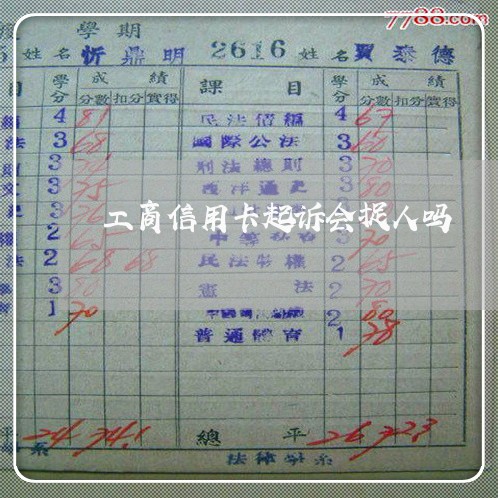 7788.com
學期
姓名 忻鼎明 2616 姓名 賈泰德
目 學分 成績 課目 學分 成績
分數 扣分 實得 分數 扣分 實得
4 81 民法債編 4 67
法 3 68 國際公法 3 60
3 刑法總則 3 70
3 75 西洋通史 3 80
3 76 3
工商信用卡起诉会捉人吗
2 65 3 70
法 2 68 68 民法物權 2 65
3 80 憲法 2 70
1 70 2 80
普通體育 1 78
平 24 74.1 總平 26 72.3
系 法律學系